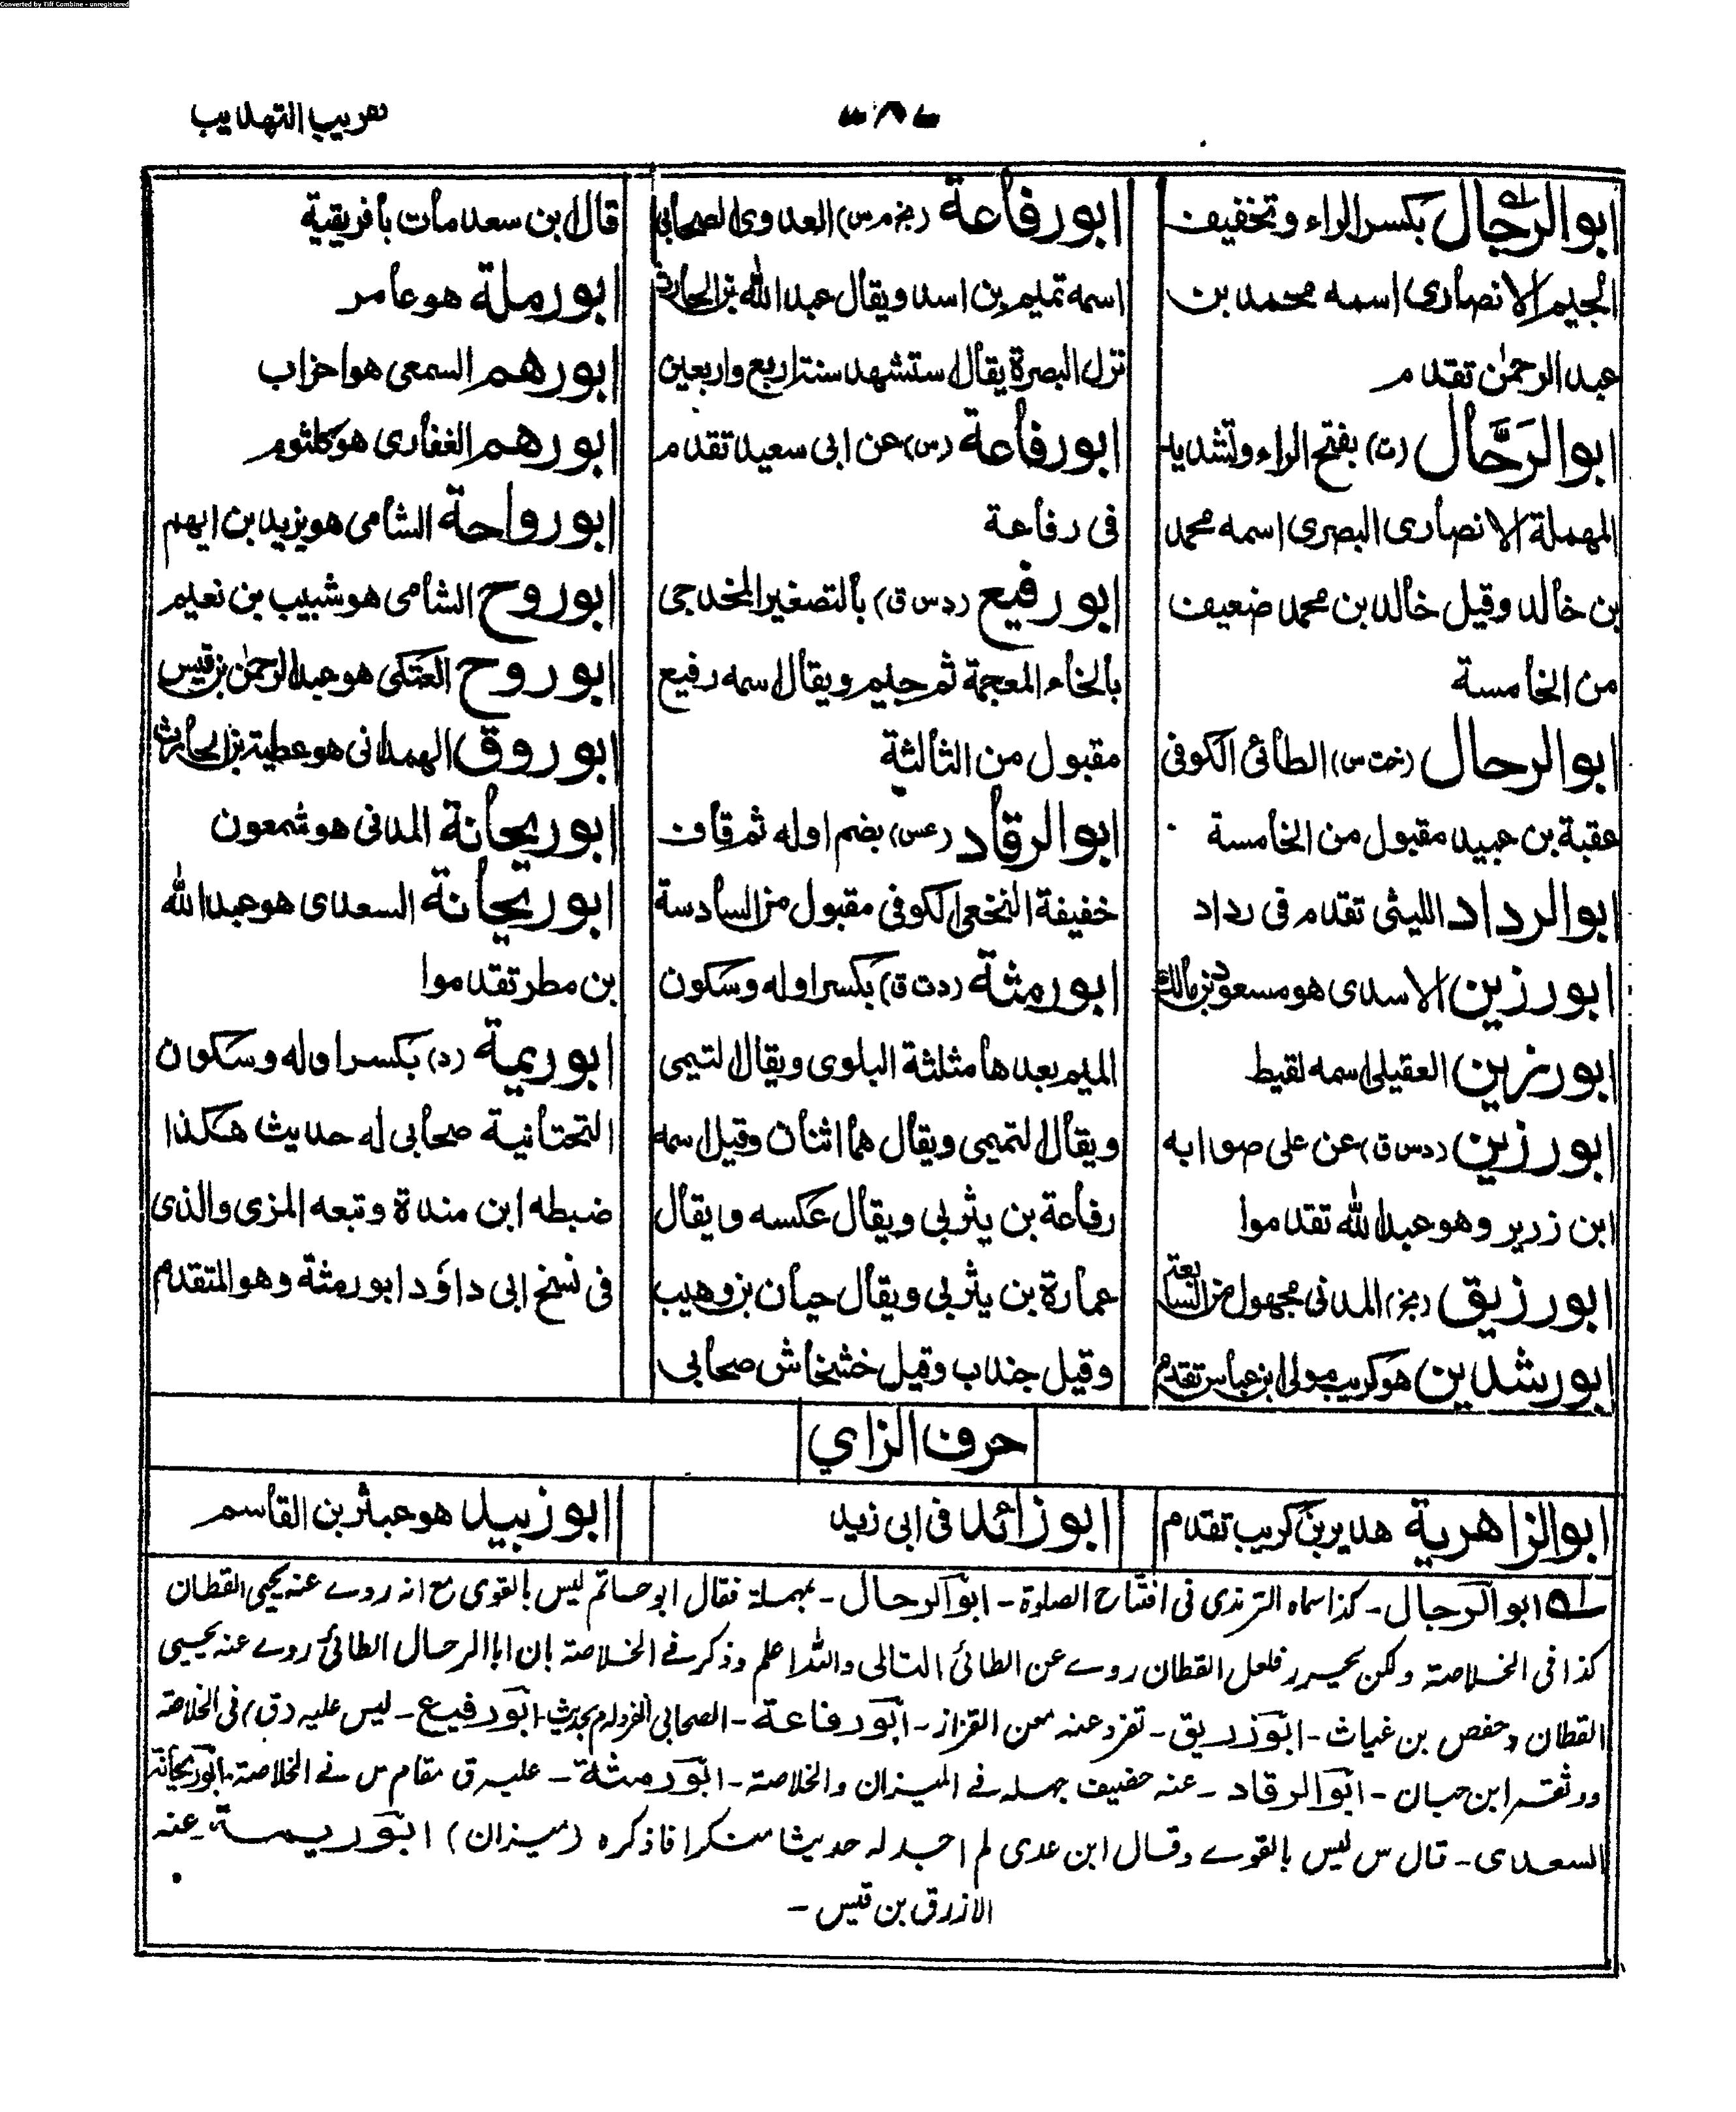 Converted by Tiff Combine - unregistered
تقريب التهذيب
ابو الرجال بكسر الراء وتخفيف
الجيم الانصارى اسمه محمد بن
عبد الرحمٰن تقدم
ابو الرَحَّال (ت) بفتح الراء وتشديد
المهملة الانصارى البصرى اسمه محمد
بن خالد وقيل خالد بن محمد ضعيف
من الخامسة
ابو الرحال (خت س) الطائى الكوفى
عقبة بن عبيد مقبول من الخامسة
ابو الرداد الليثى تقدم فى رداد
ابو رزين الاسدى هو مسعود بن مالك
ابو رزين العقيلى اسمه لقيط
ابو رزين (د س ق) عن على صوابه
ابن زرير وهو عبد الله تقدموا
ابو رزيق (بخ) المدنى مجهول من السابعة
ابو رشدين هو كريب مولى ابن عباس تقدم
ابو رفاعة (بخ م س) العدوى الصحابى
اسمه تميم بن اسد ويقال عبد الله بن الحارث
نزل البصرة يقال استشهد سنة اربع واربعين
ابو رفاعة (س) عن ابى سعيد تقدم
فى رفاعة
ابو رفيع (د س ق) بالتصغير المخدجى
بالخاء المعجمة ثم جيم ويقال اسمه رفيع
مقبول من الثالثة
ابو الرقاد (عس) بضم اوله ثم قاف
خفيفة النخعى الكوفى مقبول من السادسة
ابو رمثة (د ت ق) بكسر اوله وسكون
الميم بعدها مثلثة البلوى ويقال التيمى
ويقال التميمى ويقال هما اثنان وقيل اسمه
رفاعة بن يثربى ويقال عكسه ويقال
عمارة بن يثربى ويقال حيان بن وهيب
وقيل جندب وقيل خشخاش صحابى
قال ابن سعد مات بافريقية
ابو رملة هو عامر
ابو رهم السمعى هو احزاب
ابو رهم الغفارى هو كلثوم
ابو رواحة الشامى هو يزيد بن ايهم
ابو روح الشامى هو شبيب بن نعيم
ابو روح العتكى هو عبد الرحمٰن بن قيس
ابو روق الهمدانى هو عطية بن الحارث
ابو ريحانة المدنى هو شمعون
ابو ريحانة السعدى هو عبد الله
بن مطر تقدموا
ابو ريمة (د) بكسر اوله وسكون
التحتانية صحابى له حديث هكذا
ضبطه ابن مندة وتبعه المزى والذى
فى نسخ ابى داؤد ابو رمثة وهو المتقدم
حرف الزاي
ابو الزاهرية هدير بن كريب تقدم
ابو زائد فى ابى زيد
ابو زبيد هو عبثر بن القاسم
ابو الرجال - كذا سماه الترمذى فى افتتاح الصلوة - ابو الرحال - بمهملة فقال ابو حاتم ليس بالقوى مع انه روے عنه يحيى القطان
كذا فى الخلاصة ولكن يحرر فلعل القطان روے عن الطائى التالى والله اعلم وذكر فے الخلاصة ان ابا الرحال الطائى روے عنه يحيى
القطان وحفص بن غياث - ابو زريق - تفرد عنه معن القزاز - ابو رفاعة - الصحابى انفرد له م بحديث - ابو رفيع - ليس عليه (ق) فى الخلاصة
ووثقه ابن حبان - ابو الرقاد - عنه حفيف جهله فے الميزان والخلاصة - ابو رمثة - عليه ق مقام س فے الخلاصة - ابو ريحانة
السعدى - قال س ليس بالقوے وقال ابن عدى لم اجد له حديثا منكرا فاذكره (ميزان) ابو ريمة - عنه
الازرق بن قيس -